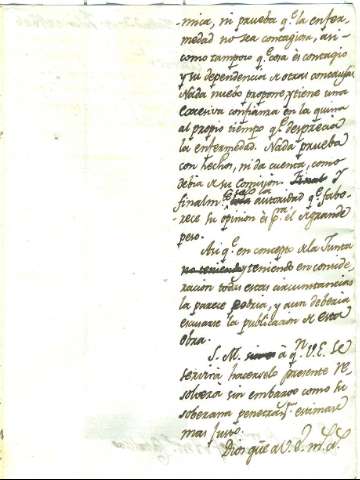 mica, ni prueba q.e la enfer
medad no sea contagiosa, asi
como tampoco q.e cosa es contagio
y su dependencia de otras concausas
Nada nuebo propone, y tiene una
excesiva confianza en la quina
al propio tiempo q.e desprecia
la enfermedad. Nada prueba
con hechos, ni da cuenta, como
debia de su comision. Final y
finalm.te toda la autoridad q.e fabo-
rece su opinion es p.a el de grande
peso.
Asi q.e en concepto de la Junta
no teniendo y teniendo en conside-
racion todas estas circunstancias
la parece podria, y aun deberia
escusarse la publicacion de esta
obra.
S. M. á q.n V. E. se
servirá hacerselo presente re
solvera sin embargo como su
soberana penetrac.n estimare
mas justo.
Dios gue á V. E. m.s a.s